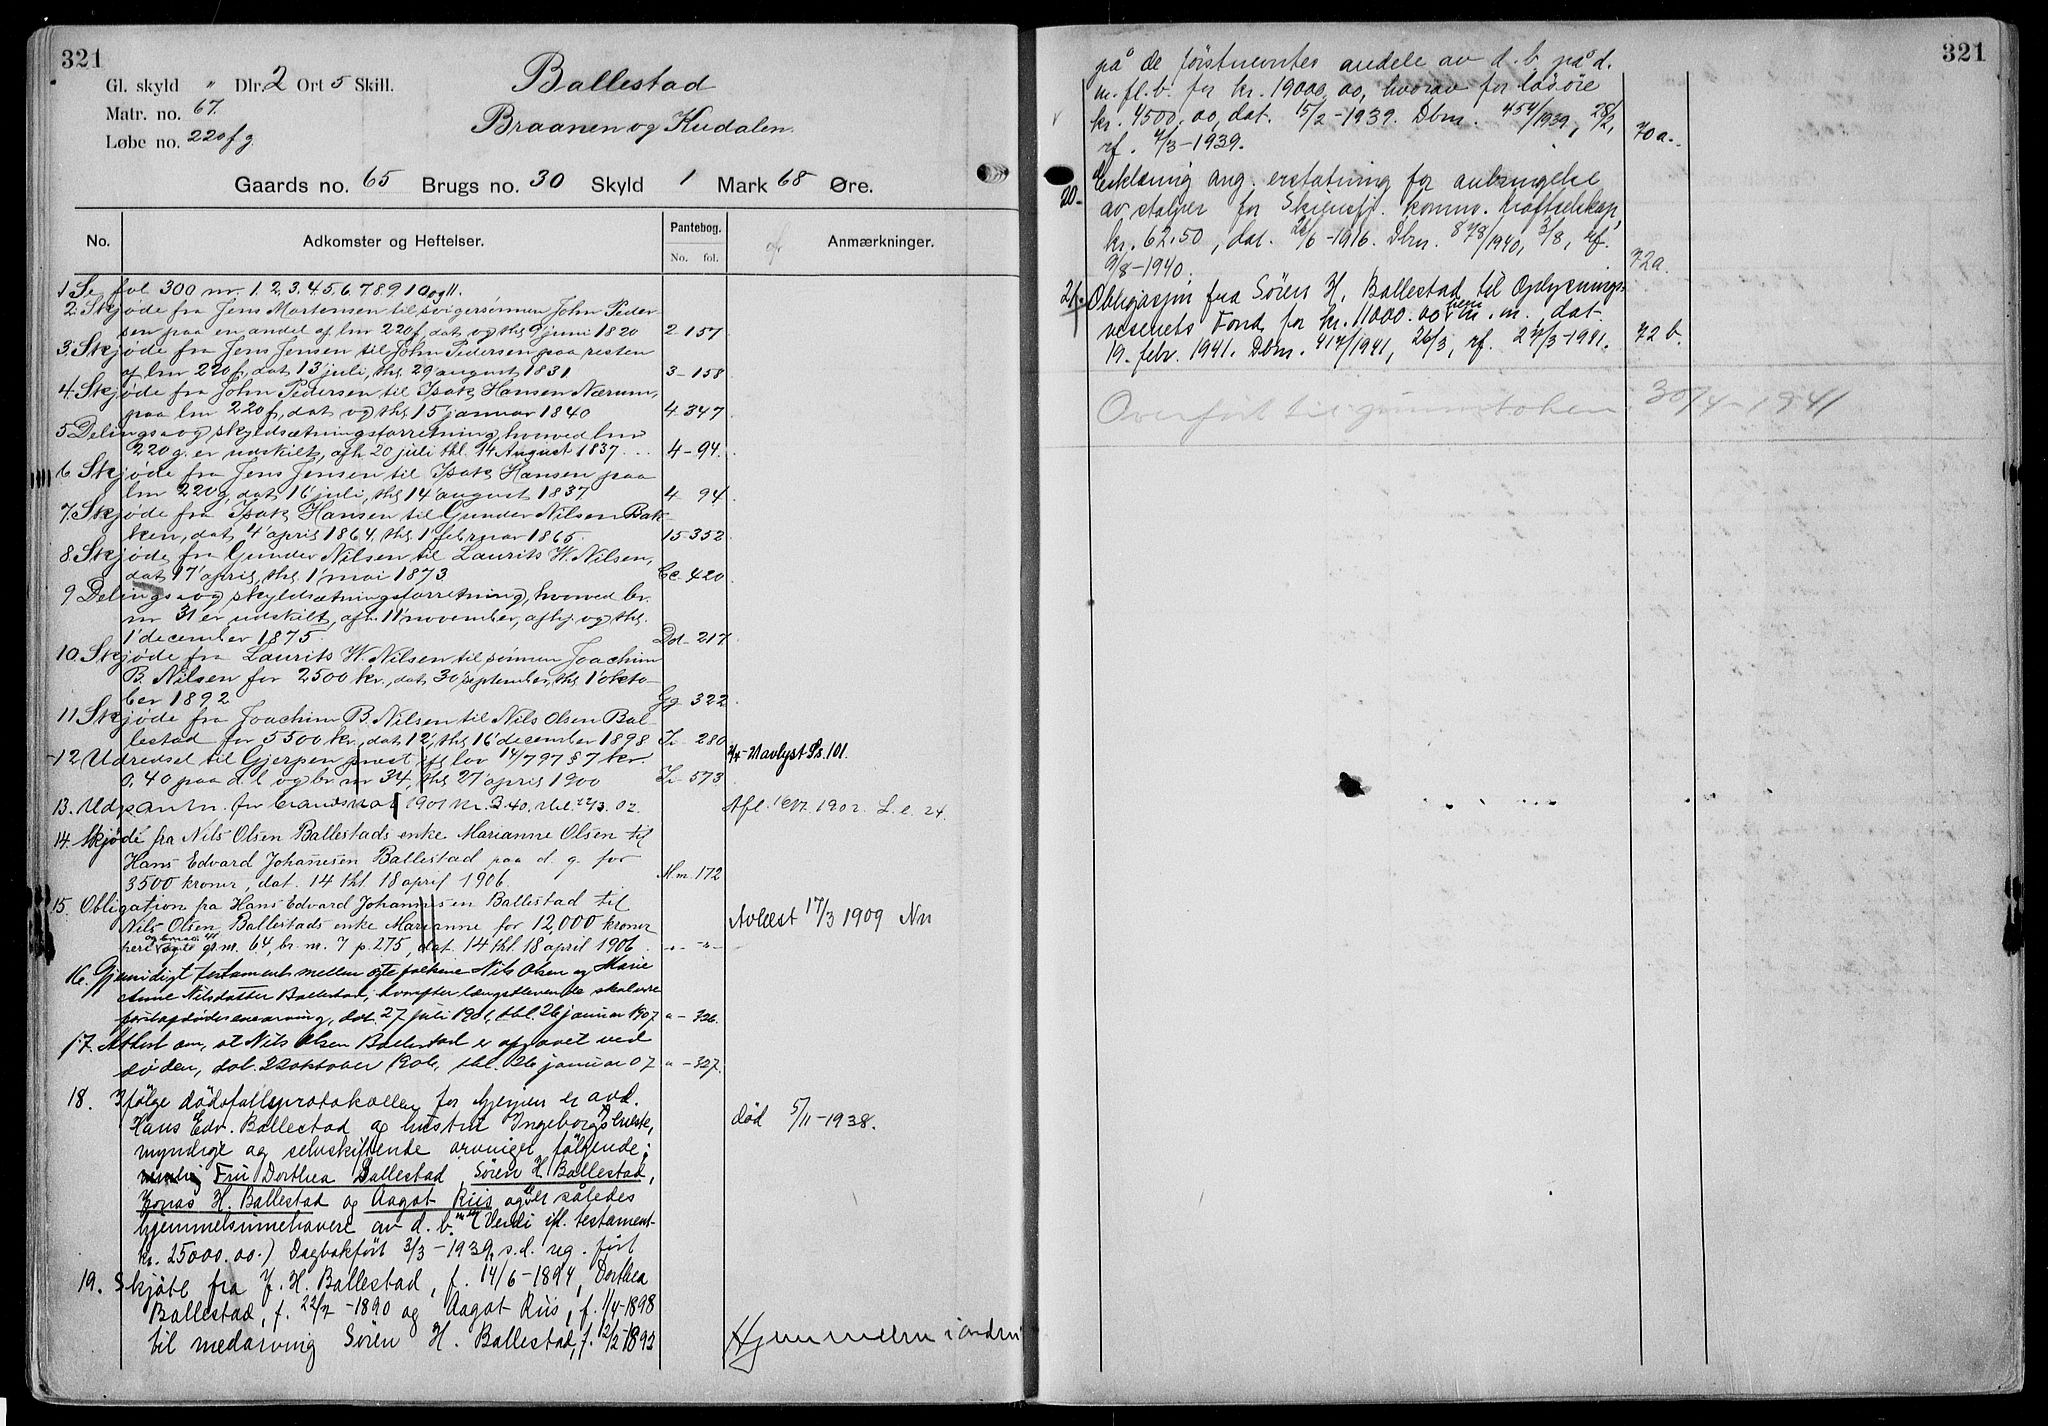 321
Gl. skyld " Dlr. 2 Ort 5 Skill.
Matr. no. 67.
Løbe no. 220 f g.
Ballestad
Braanen og Kudalen.
Gaards no. 65 Brugs no. 30 Skyld 1 Mark 68 Øre.
No. Adkomster og Heftelser. Pantebog. No. fol. Anmærkninger.
1 Se fol 300 nr. 1. 2. 3. 4. 5. 6. 7 8 9 10 og 11.
2. Skjøde fra Jens Mortensen til svigersønnen John Peder-
sen paa en andel af lnr 220 f, dat og thl 9 juni 1820 2 157
3. Skjøde fra Jens Jensen til John Pedersen paa resten
af lnr 220 f, dat 13 juli, thl 29 august 1831 3 - 158
4. Skjøde fra John Pedersen til Isak Hansen Nærum,
paa lnr 220 f, dat og thl 15 januar 1840 4 347
5 Delings- og skyldsætningsforretning, hvorved lnr
220 g. er udskilt, afh 20 juli thl. 14 August 1837 . . . 4 - 94.
6 Skjøde fra Jens Jensen til Isak Hansen paa
lnr 220 g, dat 16 juli, thl 14 august 1837 4 94
7. Skjøde fra Isak Hansen til Gunder Nilsen Bak-
ken, dat 4 april 1864, thl 1 februar 1865. 15 - 352
8. Skjøde fra Gunder Nilsen til Laurits W. Nilsen,
dat 17 april, thl 1 mai 1873 Cc 420
9 Delings- og skyldsætningsforretning, hvorved br.
nr 31 er udskilt, afh. 11 november, afhj og thl.
1 december 1875. Dd - 217
10. Skjøde fra Laurits W. Nilsen til sønnen Joachim
B. Nilsen for 2500 kr., dat 30 september, thl 1 okto-
ber 1892 Gg 322
11. Skjøde fra Joachim B. Nilsen til Nils Olsen Bal-
lestad for 5500 kr., dat 12, thl 16 december 1898 280
12 Udredsel til Gjerpen prest, ifl lov 14/7 97 § 7 kr.
0,40 paa d. l og br. nr 34, thl 27 april 1900 573 avlyst 101.
13. Udpantn. for 1901 kr. 3.40, thl 22/3 02. Afl. 1902. L. l. 24.
14. Skjøde fra Nils Olsen Ballestads enke Marianne Olsen til
Hans Edvard Johannesen Ballestad paa d. g. for
3500 kroner, dat. 14 thl. 18 april 1906. M.m. 172
15. Obligation fra Hans Edvard Johannesen Ballestad til
Nils Olsen Ballestads enke Marianne for 12,000 kroner
heri gr.nr. 64, br. nr. 7 p. 275, dat. 14 thl. 18 april 1906. - " - " - Avlæst 17/3 1909 Nn
16. Gjensidigt testament mellem ægtefolkene Nils Olsen og Marie
Anne Nilsdatter Ballestad, hvorefter længstlevende skal være
førstafdødes enearving, dat. 27 juli 1901, thl. 26 januar 1907 " - 326.
17. Attest om, at Nils Olsen Ballestad er afgaaet ved
døden, dat. 22 oktober 1906, thl. 26 januar 07 " - 327.
18. Ifølge dødsfallsprotokollen for Gjerpen er avd.
Hans Edv. Ballestad og hustru Ingeborgs eneste, død 5/11 - 1938.
myndige og selvskiftende arvinger følgende;
nemlig Fru Dorthea Ballestad, Søren H. Ballestad,
Jonas H. Ballestad og Aagot Riis og er således
hjemmelsinnehavere av d. b. (Verdi ifl. testament
kr. 25000.00.) Dagbokført 3/3 - 1939, s.d. reg. ført
19. Skjøte fra J. H. Ballestad, f. 14/6 - 1894, Dorthea
Ballestad, f. 22/7 - 1890 og Aagot Riis, f. 1/4 - 1898
til medarving Søren H. Ballestad, f. 12/2 - 1893 Hjemmelen i orden
321
på de førstnevntes andele av d. b. på d.
m. fl. b. for kr. 19000,00, hvorav for løsøre
kr. 4500,00, dat. 15/2 - 1939. Dbnr. 454/1939, 28/2,
rf. 7/3 - 1939. 70a.
20. Erklæring ang. erstatning for anbringelse
av stolper for Skiensfj. komm. Kraftselskap,
kr. 62.50, dat. 26/6 - 1916. Dbnr. 878/1940, 3/8, rf.
9/8 - 1940. 72a.
21. Obligasjon fra Søren H. Ballestad til Oplysnings-
vesenets Fond for kr. 11000.00 heri m. m. dat.
19. febr. 1941. Dbnr. 417/1941, 26/3, rf. 27/3 - 1941. 72 b.
Overført til grunnboken 30/4 - 1941